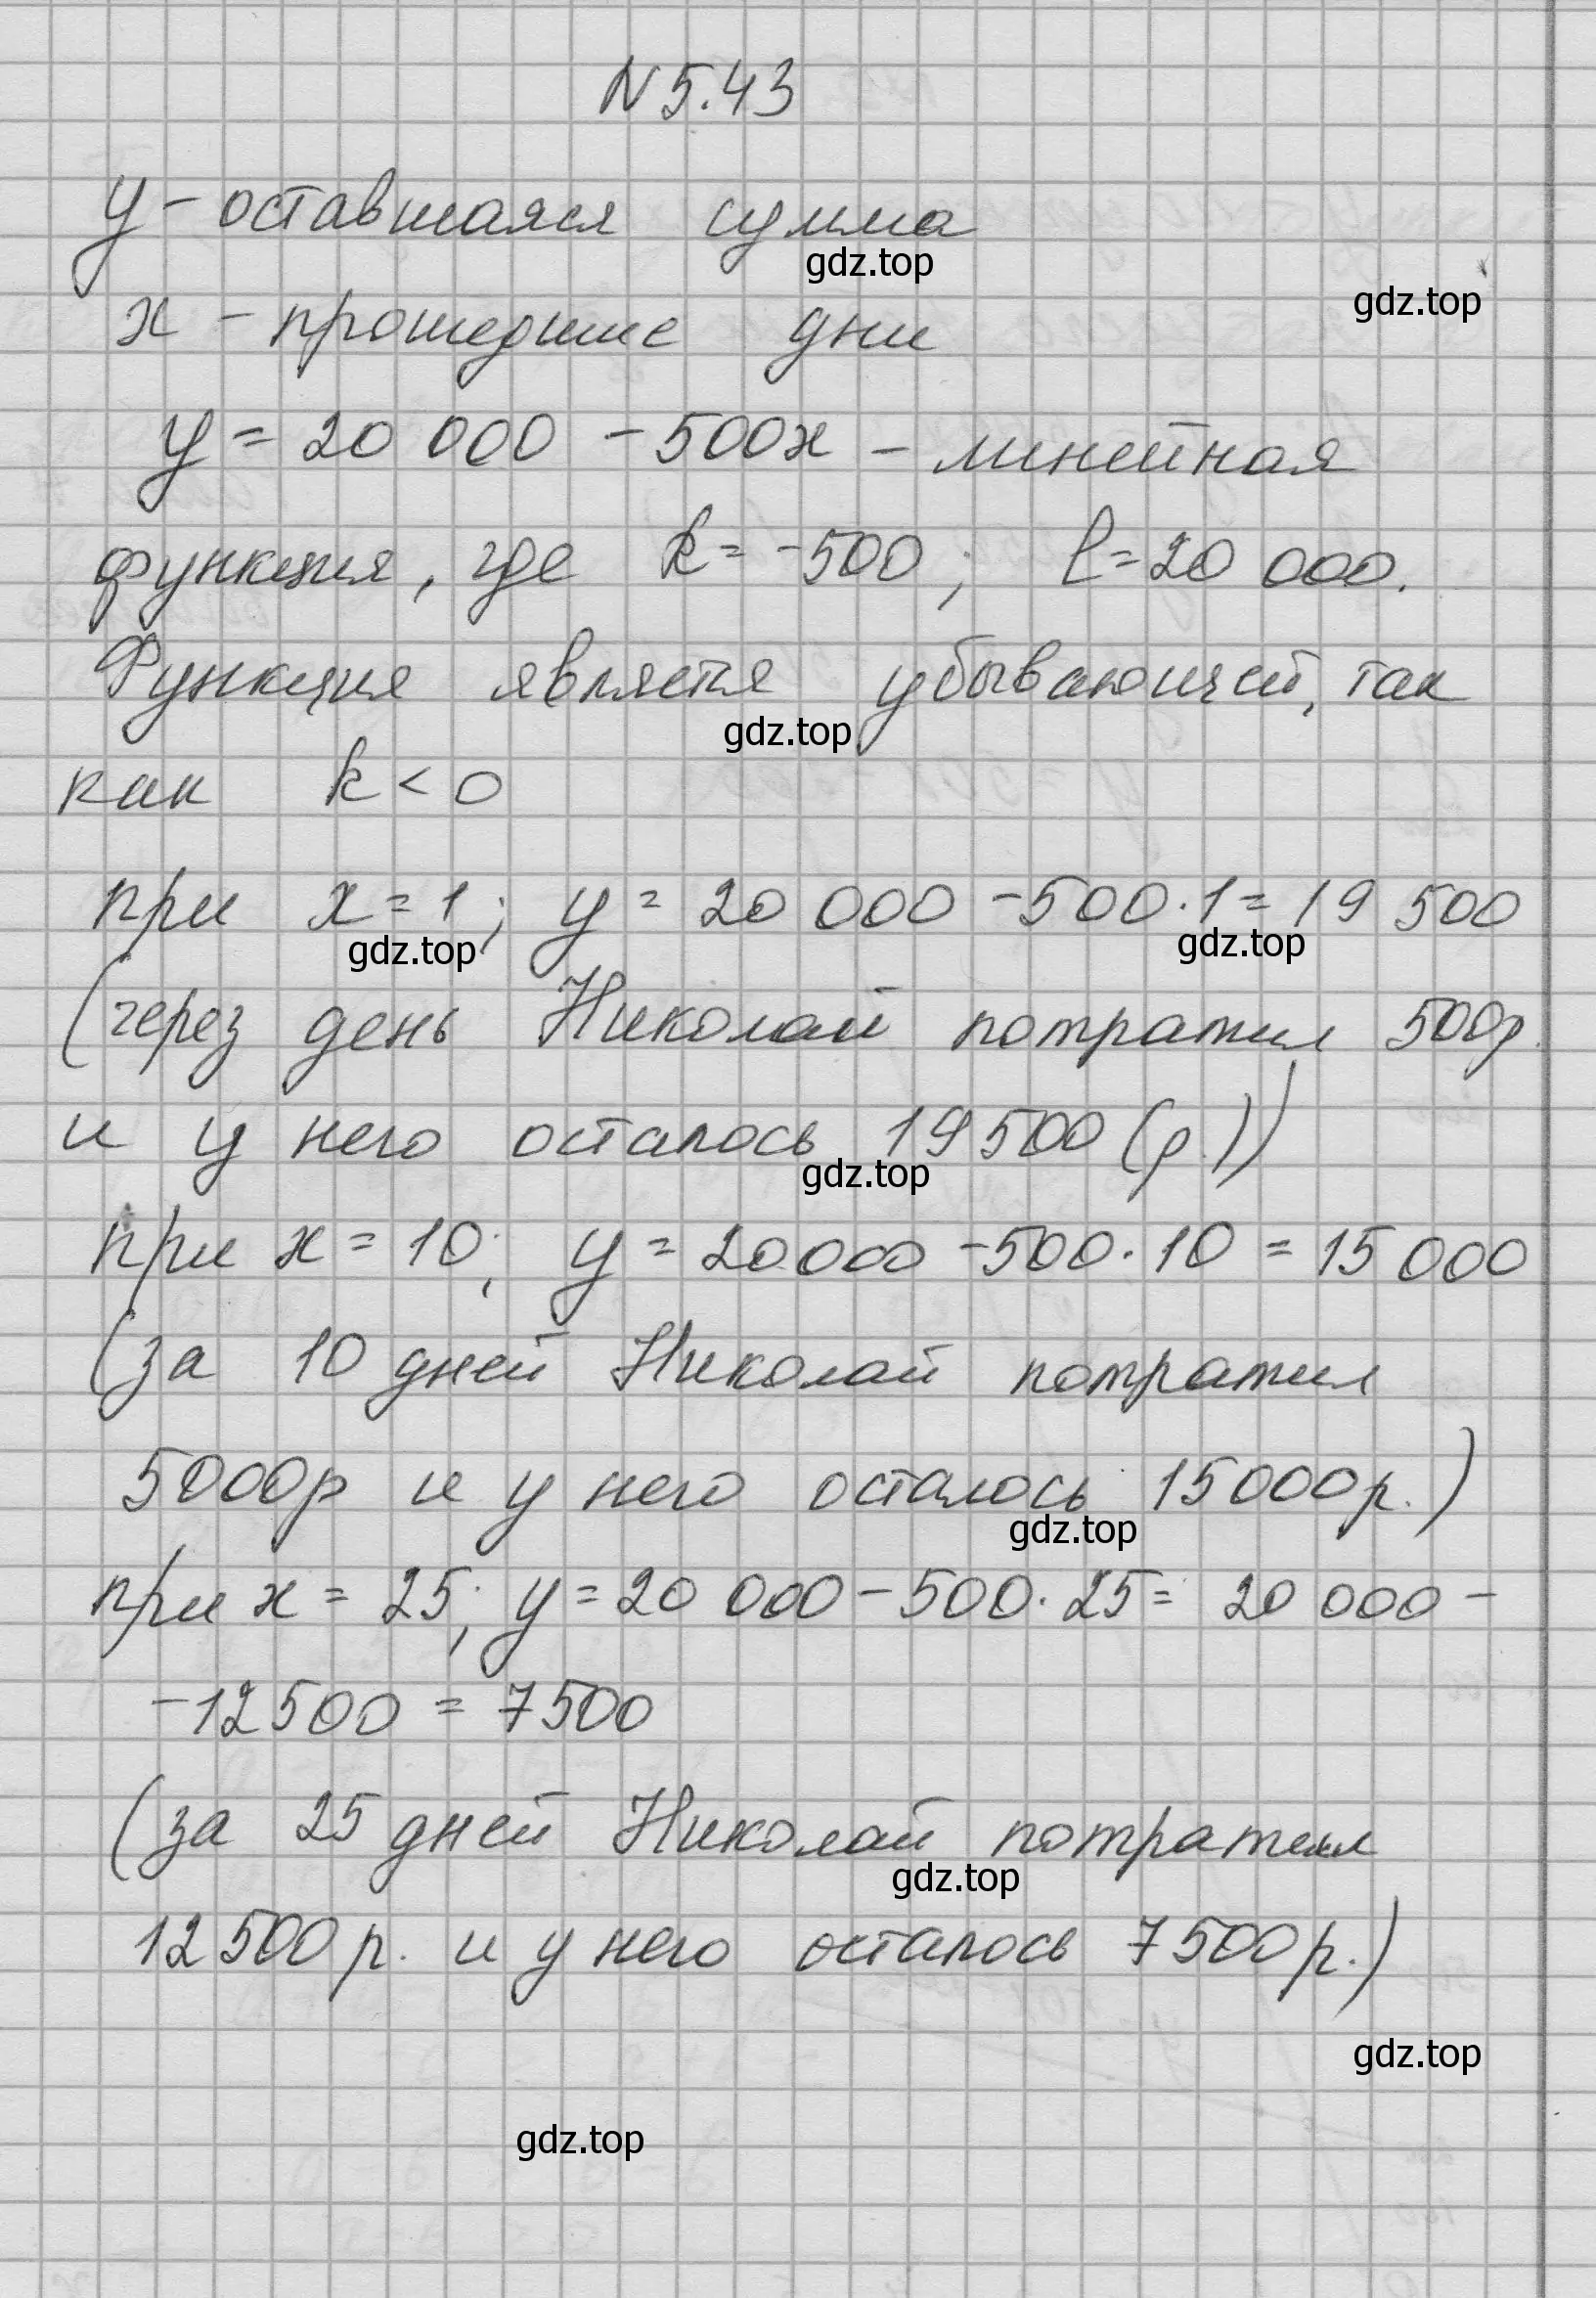 N 5.43
y - оставшаяся сумма
gdz.top
gdz.top
x - прошедшие дни
y = 20 000 - 500x - линейная
функция, где k = -500; l = 20 000.
Функция является убывающей, так
gdz.top
как k < 0
при x = 1; y = 20 000 - 500 · 1 = 19 500
gdz.top
gdz.top
(через день Николай потратил 500р.
и у него осталось 19 500 (р.))
gdz.top
при x = 10; y = 20 000 - 500 · 10 = 15 000
(за 10 дней Николай потратил
5000р и у него осталось 15 000р.)
gdz.top
при x = 25; y = 20 000 - 500 · 25 = 20 000 -
- 12 500 = 7500
(за 25 дней Николай потратил
gdz.top
12 500 р. и у него осталось 7 500 р.)
gdz.top
gdz.top